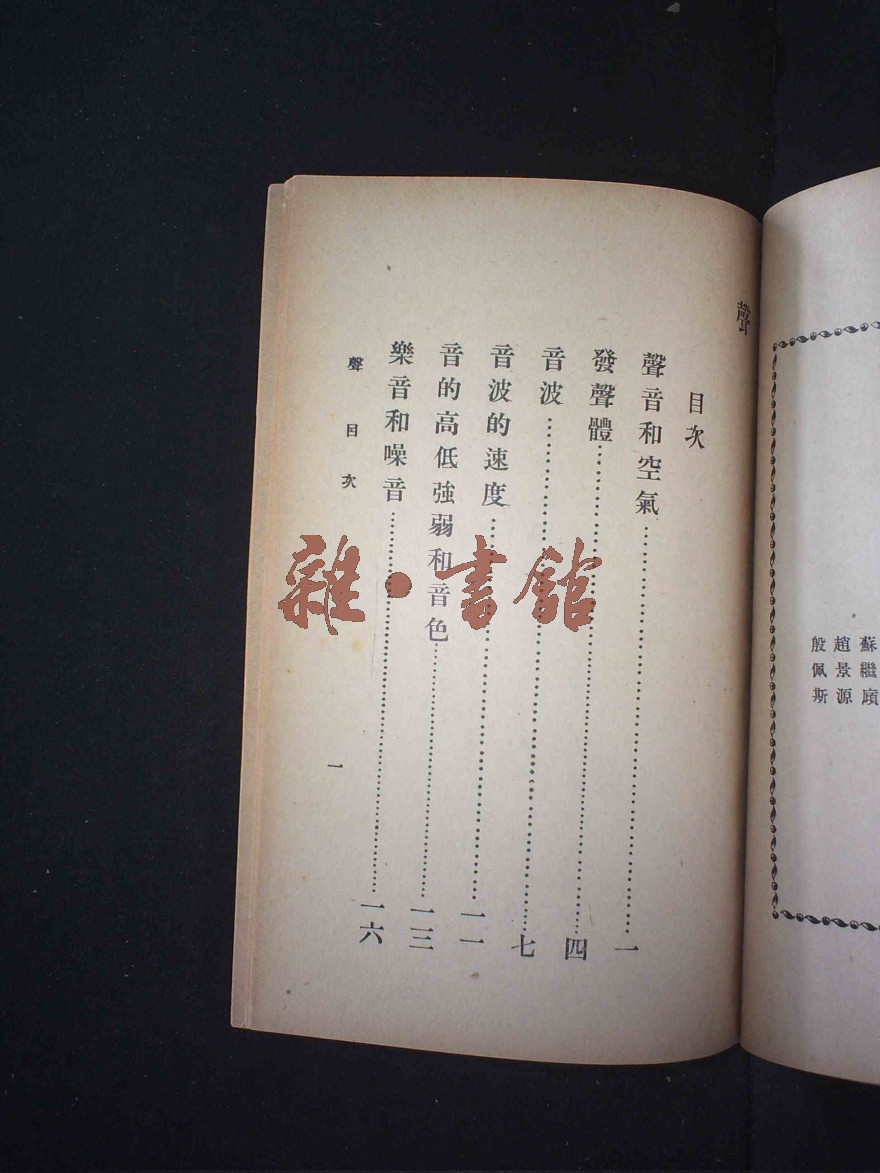 蘇繼廎
趙景源
殷佩斯
聲
目次
聲音和空氣……一
發聲體……四
音波……七
音波的速度……一一
音的高低強弱和音色……一三
樂音和噪音……一六
聲 目次
一
雜·書館